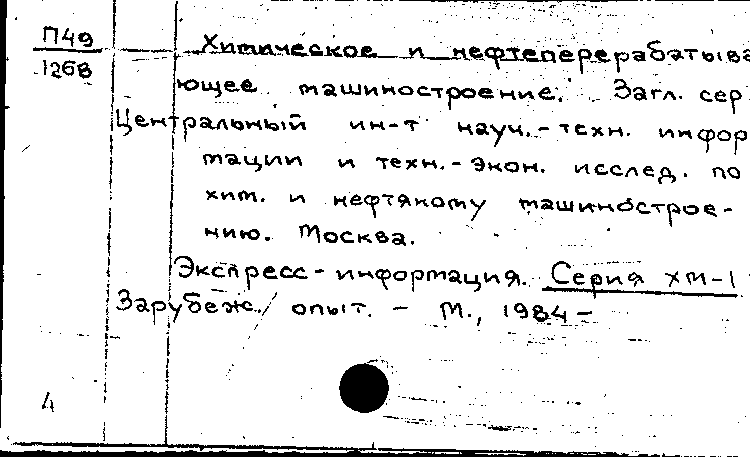 П49
1268
Химическое и нефтеперерабатыва
ющее машиностроение. Загл. сер
Центральный ин-т науч.-техн. инфор
мации и техн.-экон. исслед. по
хим. и нефтяному машинострое-
нию. Москва.
Экспресс-информация. Серия ХМ-1
Зарубеж. опыт. - М., 1984-
4